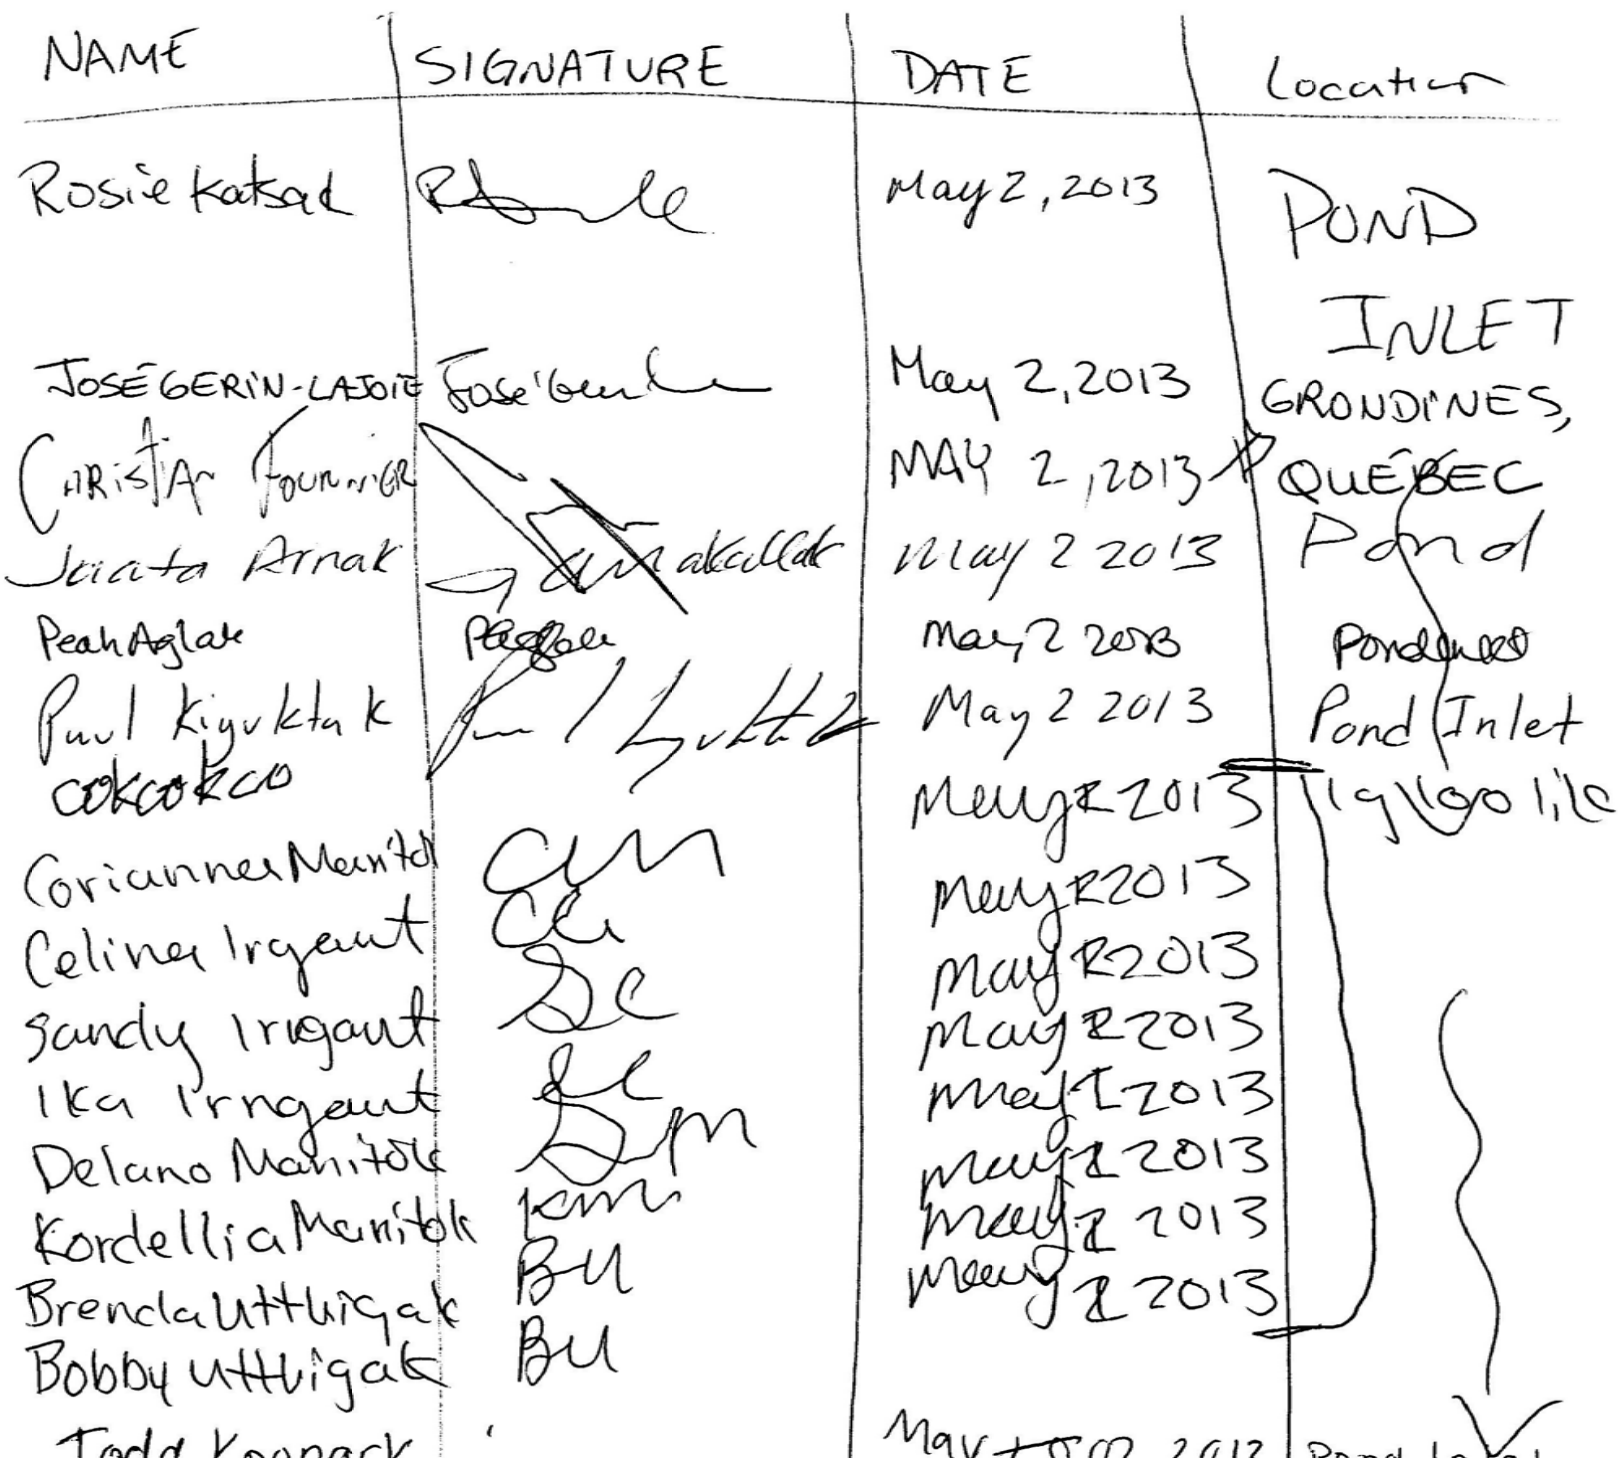 NAME SIGNATURE DATE Location
Rosie Katsak May 2, 2013 POND
INLET
JOSÉ GERIN-LAJOIE José Gerin May 2, 2013 GRONDINES,
CHRISTIAN FOURNIER MAY 2, 2013 QUÉBEC
Arnak May 2 2013 Pond
Peah Aglak May 2 2013 Pond
Paul Kiguktak Paul Kiguktak May 2 2013 Pond Inlet
May 2 2013
Corianna Manitok CM May 2 2013
Celina Irgaut May 2 2013
Sandy Irngaut May 2 2013
Ika Irngaut May 2 2013
Delano Manitok DM May 2 2013
Kordellia Manitok KM May 2 2013
Brenda Uttuigak BU May 2 2013
Bobby Uttuigak BU
Todd 2013 Pond Inlet